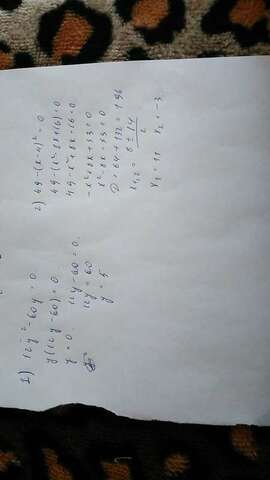 1) 12y² - 60y = 0
y(12y - 60) = 0
y = 0. 12y - 60 = 0.
12y = 60
y = 5
2) 49 - (x - 4)² = 0
49 - (x² - 8x + 16) = 0
49 - x² + 8x - 16 = 0.
- x² + 8x + 33 = 0
x² - 8x - 33 = 0
D = 64 + 132 = 196
x₁,₂ = 8 ± 14 / 2
x₁ = 11 x₂ = -3